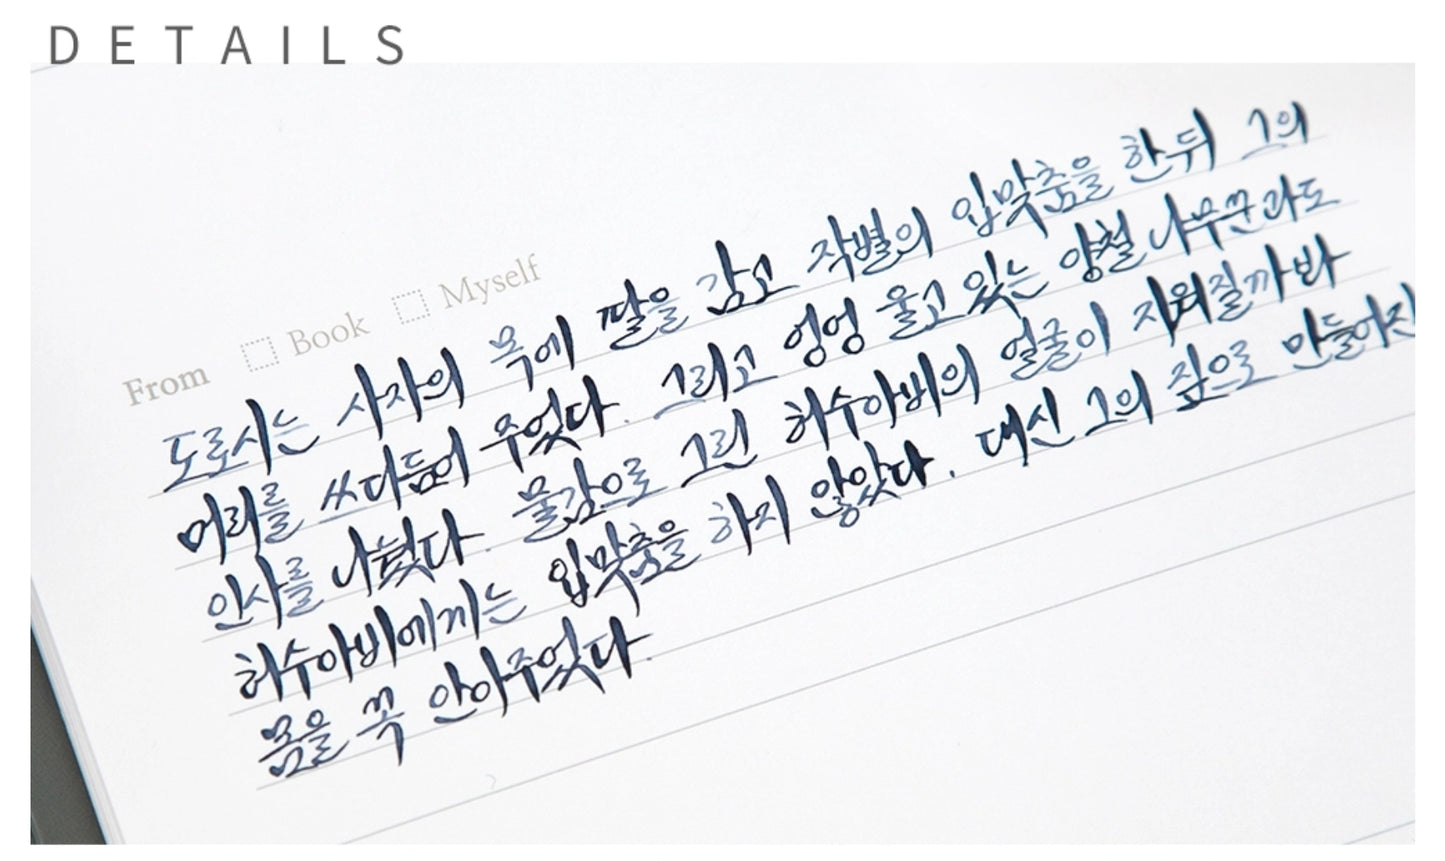 DETAILS
From Book Myself
도로시는 사자의 목에 팔을 감고 작별의 입맞춤을 한 뒤 그의
머리를 쓰다듬어 주었다. 그리고 엉엉 울고 있는 양철 나무꾼과도
인사를 나눴다. 물감으로 그린 허수아비의 얼굴이 지워질까봐
허수아비에게는 입맞춤을 하지 않았다. 대신 그의 짚으로 만들어진
몸을 꼭 안아주었다.